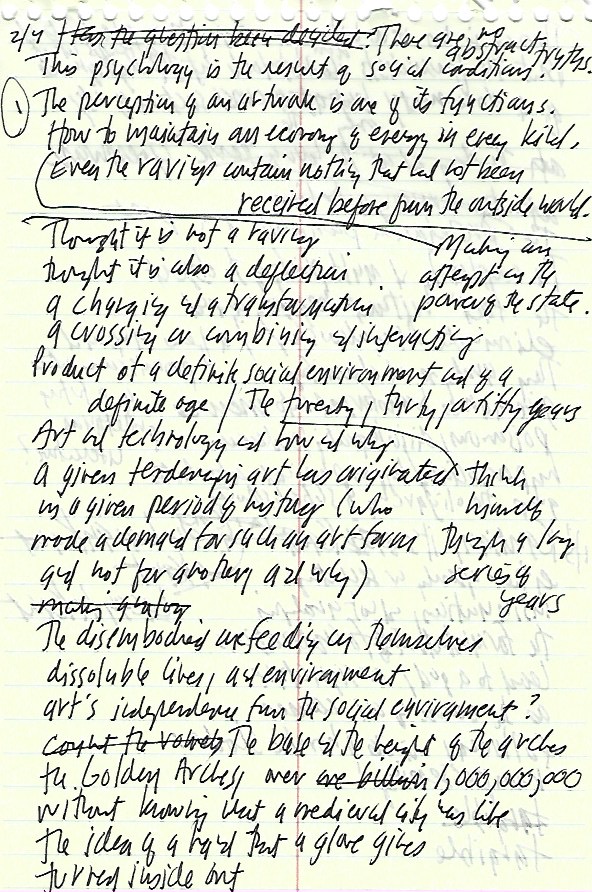 2/4 Has the question been decided? There are no abstract truths.
This psychology is the result of social conditions.
1 The perception of an artwork is one of its functions.
How to maintain an economy of energy in every kind,
(Even the ravings contain nothing that had not been
received before from the outside world.
Thought it is not a raving
thought it is also a deflection
a changing and a transformation
a crossing or combining and interacting
Making an
attempt on the
power of the state.
Product of a definite social environment and of a
definite age / The twenty, thirty, or fifty years
Art and technology and how and why
a given tendency in art has originated
in a given period of history (who
made a demand for such an art form
and not for another and why)
think
himself
through a long
series of
years
making
The disembodied are feeding on themselves
dissoluble lives, and environment
art's independence from the social environment?
The base and the height of the arches
the Golden Arches, over are billion 1,000,000,000
without knowing what a medieval city was like
the idea of a hand that a glove gives
turned inside out